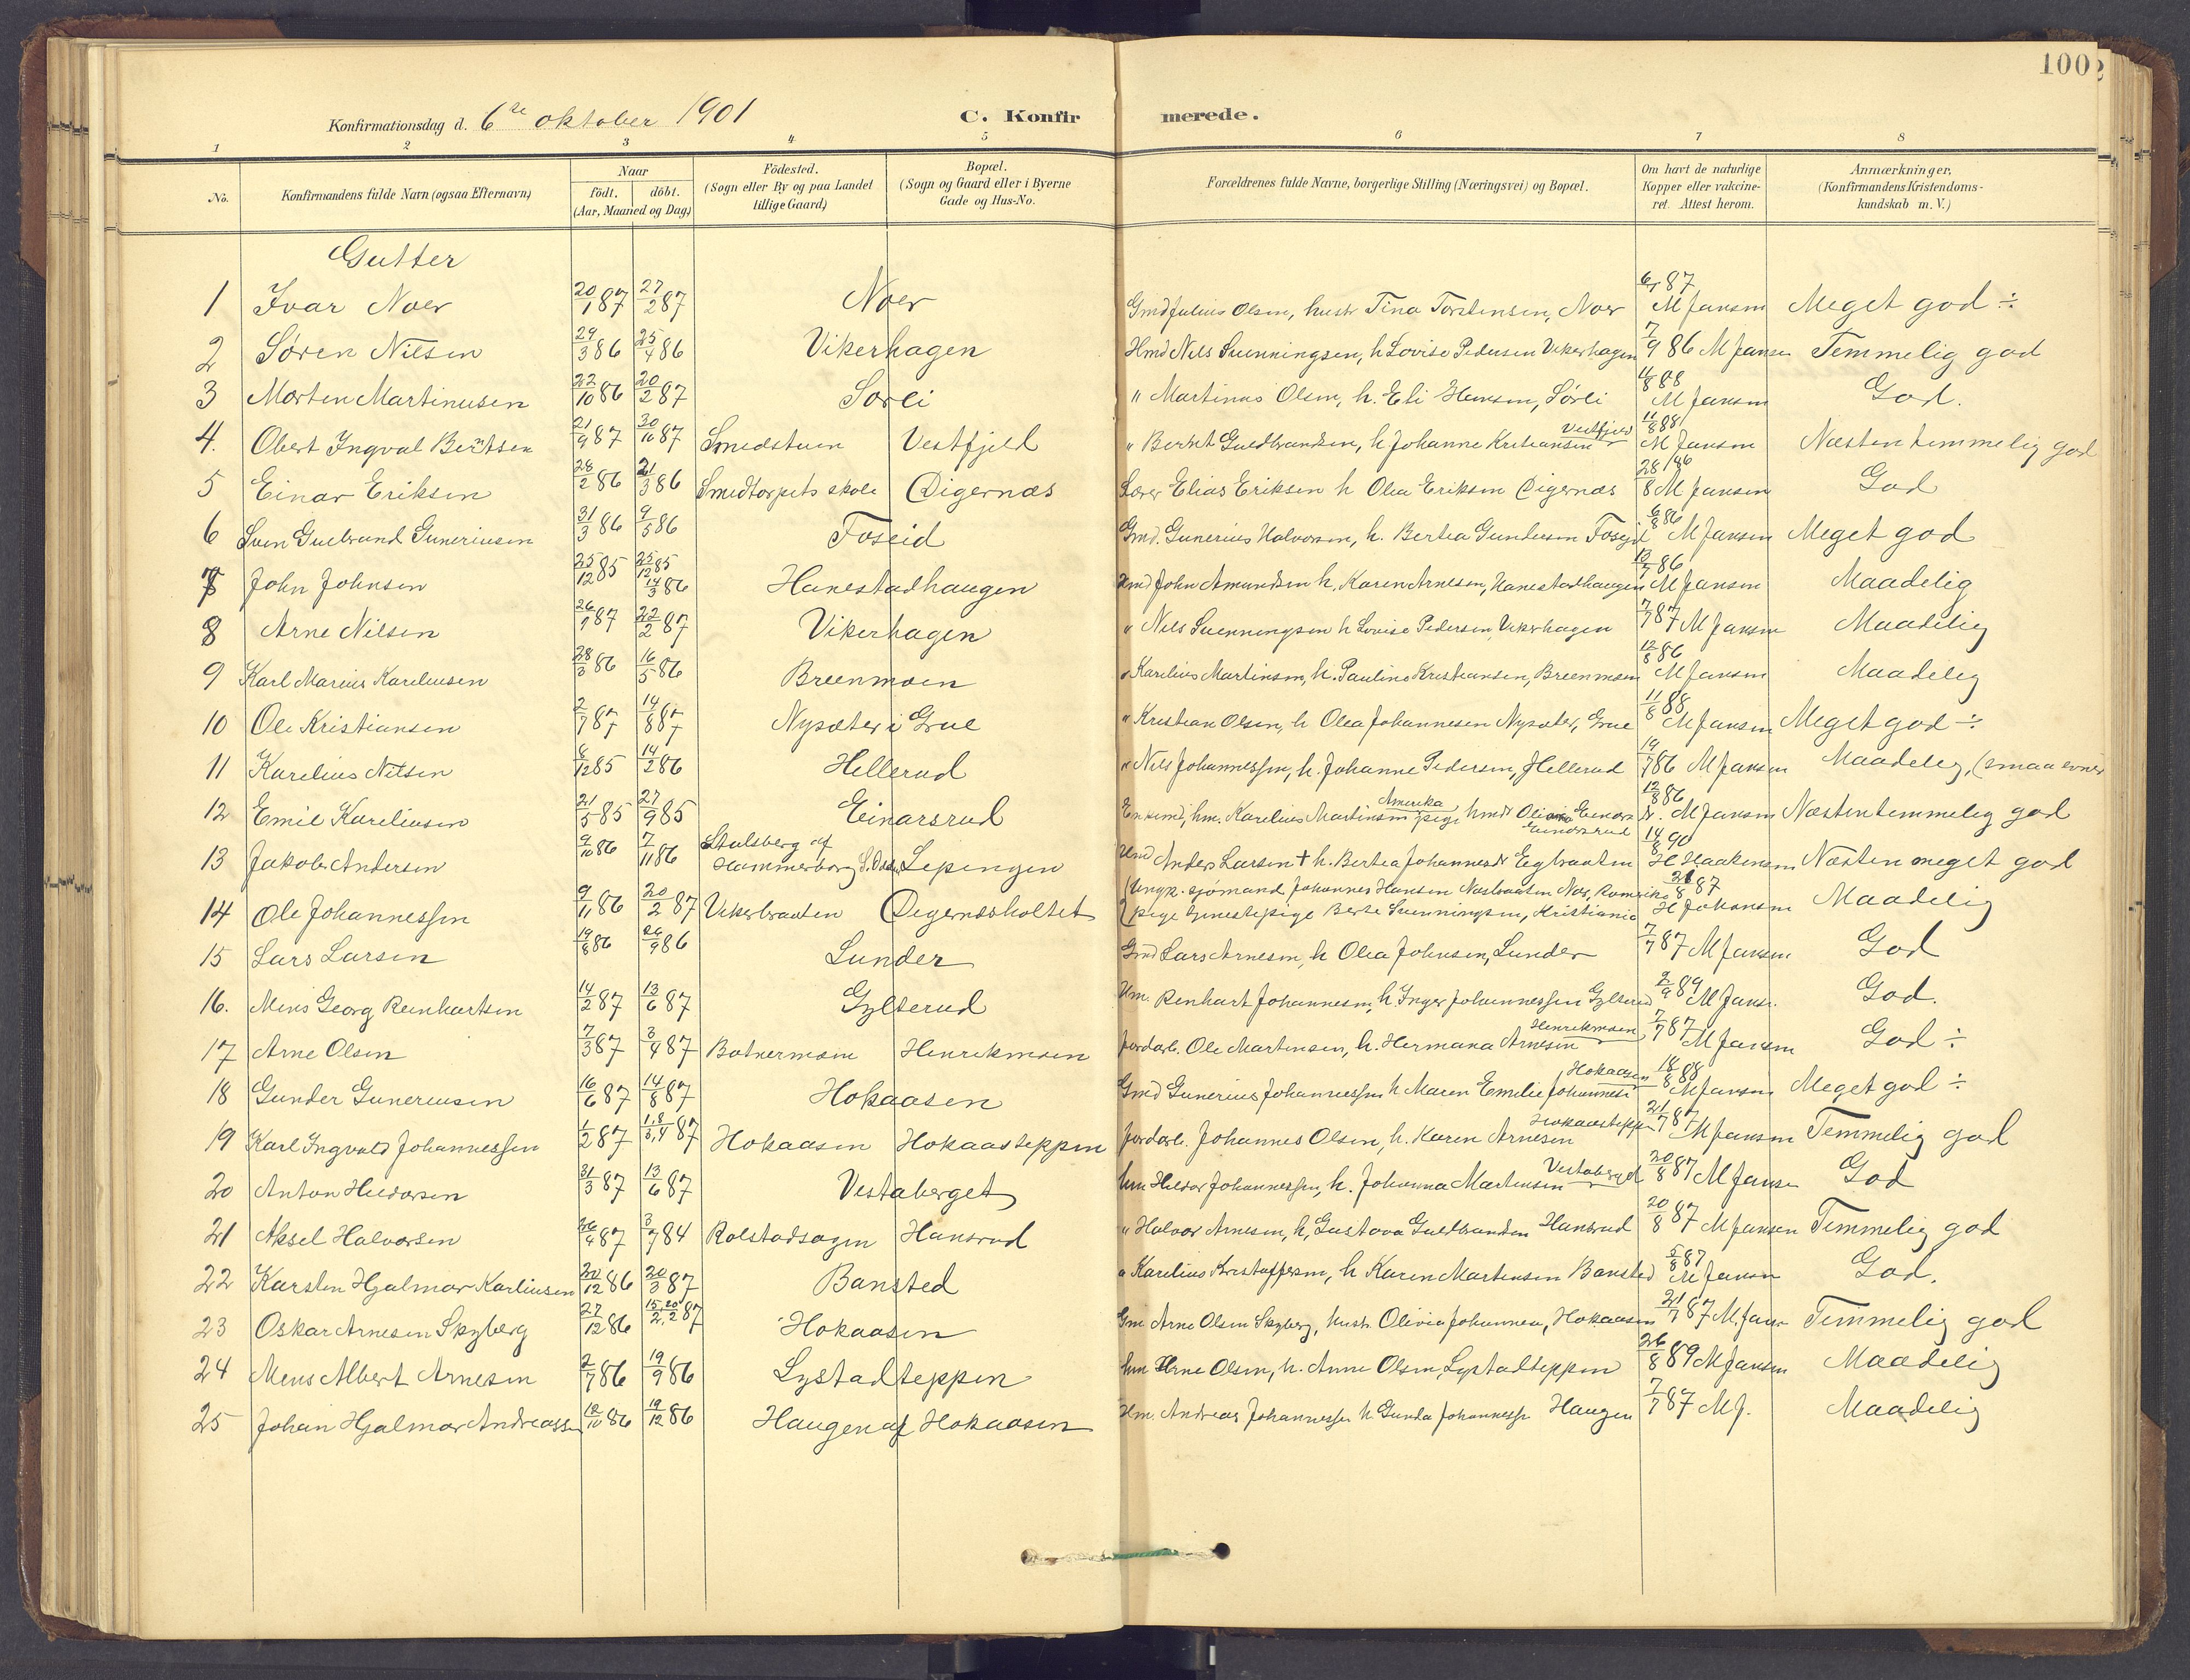 100
Konfirmationsdag d. 6te oktober 1901
C. Konfirmerede.
1 2 3 4 5 6 7 8
No. Konfirmandens fulde Navn (ogsaa Efternavn) Naar födt. döbt. (Aar, Maaned og Dag) Födested. (Sogn eller By og paa Landet tillige Gaard) Bopæl. (Sogn og Gaard eller i Byerne Gade og Hus-No. Forældrenes fulde Navne, borgerlige Stilling (Næringsvei) og Bopæl. Om havt de naturlige Kopper eller vakcineret. Attest herom. Anmærkninger, (Konfirmandens Kristendomskundskab m. V.)
Gutter
1 Ivar Noer 20/1 87 27/2 87 Noer Gmd Julius Olsen, hustr Tina Torstensen, Noer 6/7 87 M Jansen Meget god ÷
2 Søren Nilsen 29/3 86 25/4 86 Vikerhagen Hmd Nils Svenningsen, h Lovise Pedersen Vikerhagen 7/9 86 M Jansen Temmelig god
3 Morten Martinusen 22/10 86 20/2 87 Sørli " Martinus Olsen, h. Eli Hansen, Sørli 88 M Jansen God.
4. Obert Ingval Berntsen 21/9 87 30/10 87 Smedstuen Vestfjeld " Bernt Guldbrandsen, h Johanne Kristiansen Vestfjeld 11/8 88 M Jansen Næsten temmelig god
5 Einar Eriksen 28/2 86 21/3 86 Smedtorpets skole Digernæs Lærer Elias Eriksen h Olea Eriksen Digernæs 28/8 86 M Jansen God
6 Sven Gulbrand Guneriusen 31/3 86 9/5 86 Foseid Gmd. Gunerius Halvorsen, h. Bertea Gundersen Foseid 6/8 86 M Jansen Meget god
7 John Johnsen 25/12 85 25/12 85 14/3 86 Hanestadhaugen Hmd John Amundsen h. Karen Arnesen, Hanestadhaugen 86 M Jansen Maadelig
8 Arne Nilsen 26/1 87 22/2 87 Vikerhagen " Nils Svenningsen h Lovise Pedersen Vikerhagen 7/7 87 M Jansen Maadelig
9 Karl Marius Kareliusen 28/3 86 16/5 86 Breenmoen " Karelius Martinsen, h. Pauline Kristiansen, Breenmoen 12/8 86 M Jansen Maadelig
10 Ole Kristiansen 2/7 87 14/8 87 Nysæter i Grue " Kristian Olsen, h Olea Johannesen Nysæter, Grue 11/8 88 M Jansen Meget god ÷
11 Karelius Nilsen 6/12 85 14/2 86 Hellerud " Nils Johannessen, h. Johanne Pedersen, Hellerud 19/7 86 M Jansen Maadelig, (smaa evner
12 Emil Kareliusen 21/5 85 27/9 85 Einarsrud hm. Karelius Martinsen Amerika pige Einarsrud 12/8 86 M Jansen Næsten temmelig god
13 Jakob Andersen 9/10 86 7/11 86 Stulsberg af Hammerborg Lepingen Hmd Anders Larsen † h. Bertea Johannesd Egbraaten 14/8 90 H Haakensen Næsten meget god
14 Ole Johannessen 9/11 86 20/2 87 Vikerbraaten Digernæsholtet (Ungk. sjömand Johannes Hansen Næsbraaten Næs, Romerike (pige tjenestepige Berte Svenningsen, Kristiania 21/8 87 H Johansen Maadelig
15 Lars Larsen 19/8 86 26/9 86 Lunder Gmd Lars Arnesen, h Olea Johnsen, Lunder 7/7 87 M Jansen God
16. Mens Georg Reinhartsen 14/2 87 13/6 87 Gylterud Hm. Renhart Johannesen, h. Inger Johannessen Gylterud 2/9 89 M Jans. God.
17 Arne Olsen 7/3 87 3/4 87 Botnermoen Henrikmoen Jordarb. Ole Martinsen, h. Hermana Arnesen Henrikmoen 7/7 87 M Jansen God ÷
18 Gunder Guneriusen 16/6 87 14/8 87 Hokaasen Gmd Gunerius Johannessen h Maren Emilie Johannes Hokaasen 18/8 88 M Jansen Meget god ÷
19 Karl Ingvald Johannessen 1/2 87 87 Hokaasen Hokaasteppen Jordarb. Johannes Olsen, h. Karen Arnesen Hokaasteppen 21/7 87 M Jansen Temmelig god
20 Anton Hildorsen 31/3 87 13/6 87 Vestaberget hm Hildor Johannessen, h. Johanna Martinsen Vestaberget 20/8 87 M Jansen God
21 Aksel Halvorsen 26/4 87 3/7 84 Rolstadsagen Hansrud " Halvor Arnesen, h, Gustava Guldbrandsen Hansrud 20/8 87 M Jansen Temmelig god
22 Karsten Hjalmar Karliusen 20/12 86 20/3 87 Bansted " Karelius Kristoffersen, h Karen Martinsen Bansted 5/8 87 M Jansen God.
23 Oskar Arnesen Skyberg 27/12 86 15,20/2,2 87 Hokaasen Gm Arne Olsen Skyberg, hustr. Olivia Johannes, Hokaasen 21/7 87 M. Jansen Temmelig god
24 Mens Albert Arnesen 2/7 86 19/9 86 Lystadteppen hm Arne Olsen, h. Anne Olsen, Lystadteppen 26/8 89 M Jansen Maadelig
25 Johan Hjalmar Andreassen 12/10 86 19/12 86 Haugen af Hokaasen Hm. Andreas Johannessen h Gunda Johannessen Haugen 7/7 87 M.J. Maadelig